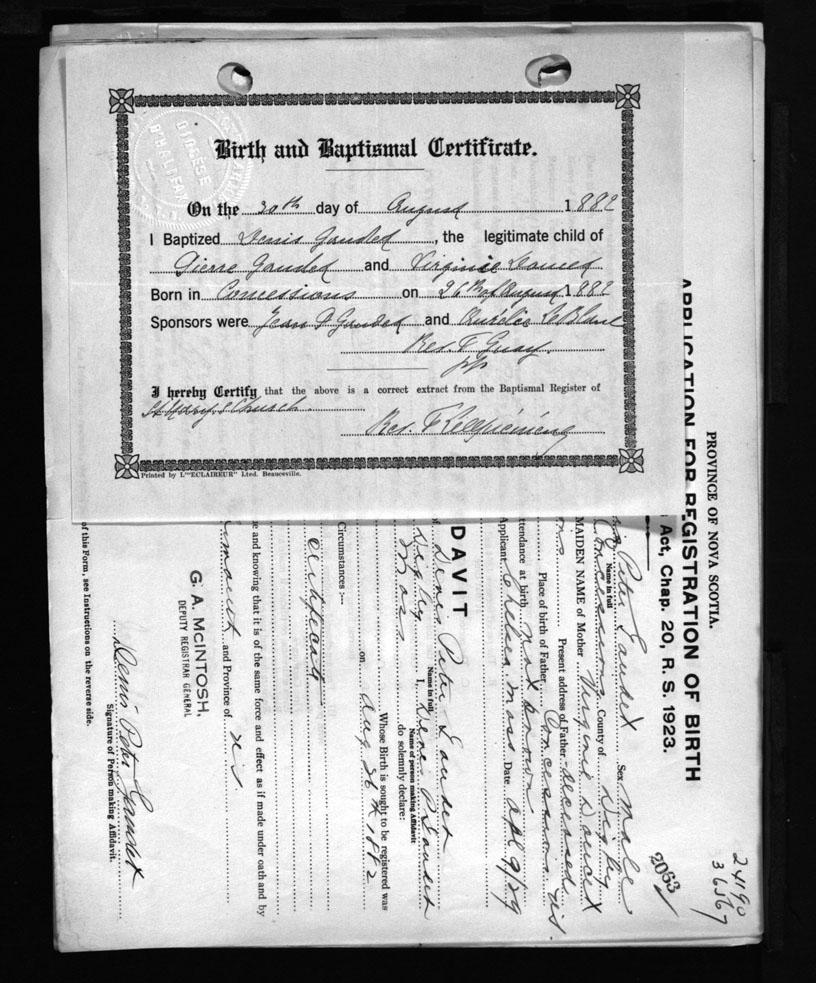 Birth and Baptismal Certificate.
On the 30th day of August 1882
I Baptized Denis Gauded, the legitimate child of
Pierre Gauded and Virginie Doucet
Born in Concessions on 26th of August 1882
Sponsors were Jean P Gauded and Aurelie LeBlanc
Rev. F Guay
pp
I hereby Certify that the above is a correct extract from the Baptismal Register of
St Mary's Church
Rev. F
Printed by L'"ECLAIREUR" Ltd. Beauceville.
DIOCESE
D'HALIFAX
PROVINCE OF NOVA SCOTIA.
APPLICATION FOR REGISTRATION OF BIRTH
Act, Chap. 20, R. S. 1923.
24190
36567
2063
Peter Gaudet Sex Male
Name in full
Concessions County of Digby
MAIDEN NAME of Mother Virginie Doucet
Present address of Father deceased
Place of birth of Father Concessions N.S.
ttendance at birth not known
Applicant Chelsea Mass Date Apl 9/29
DAVIT
of Denis Peter Gaudet
Name in full
Digby I, Denis P Gaudet
Name of person making Affidavit
Mass do solemnly declare:
Whose Birth is sought to be registered was
on Aug 26th 1882
Circumstances :—
certificate
e and knowing that it is of the same force and effect as if made under oath and by
and Province of N.S.
G. A. McINTOSH,
DEPUTY REGISTRAR GENERAL
Denis Peter Gaudet
Signature of Person making Affidavit.
of this Form, see Instructions on the reverse side.